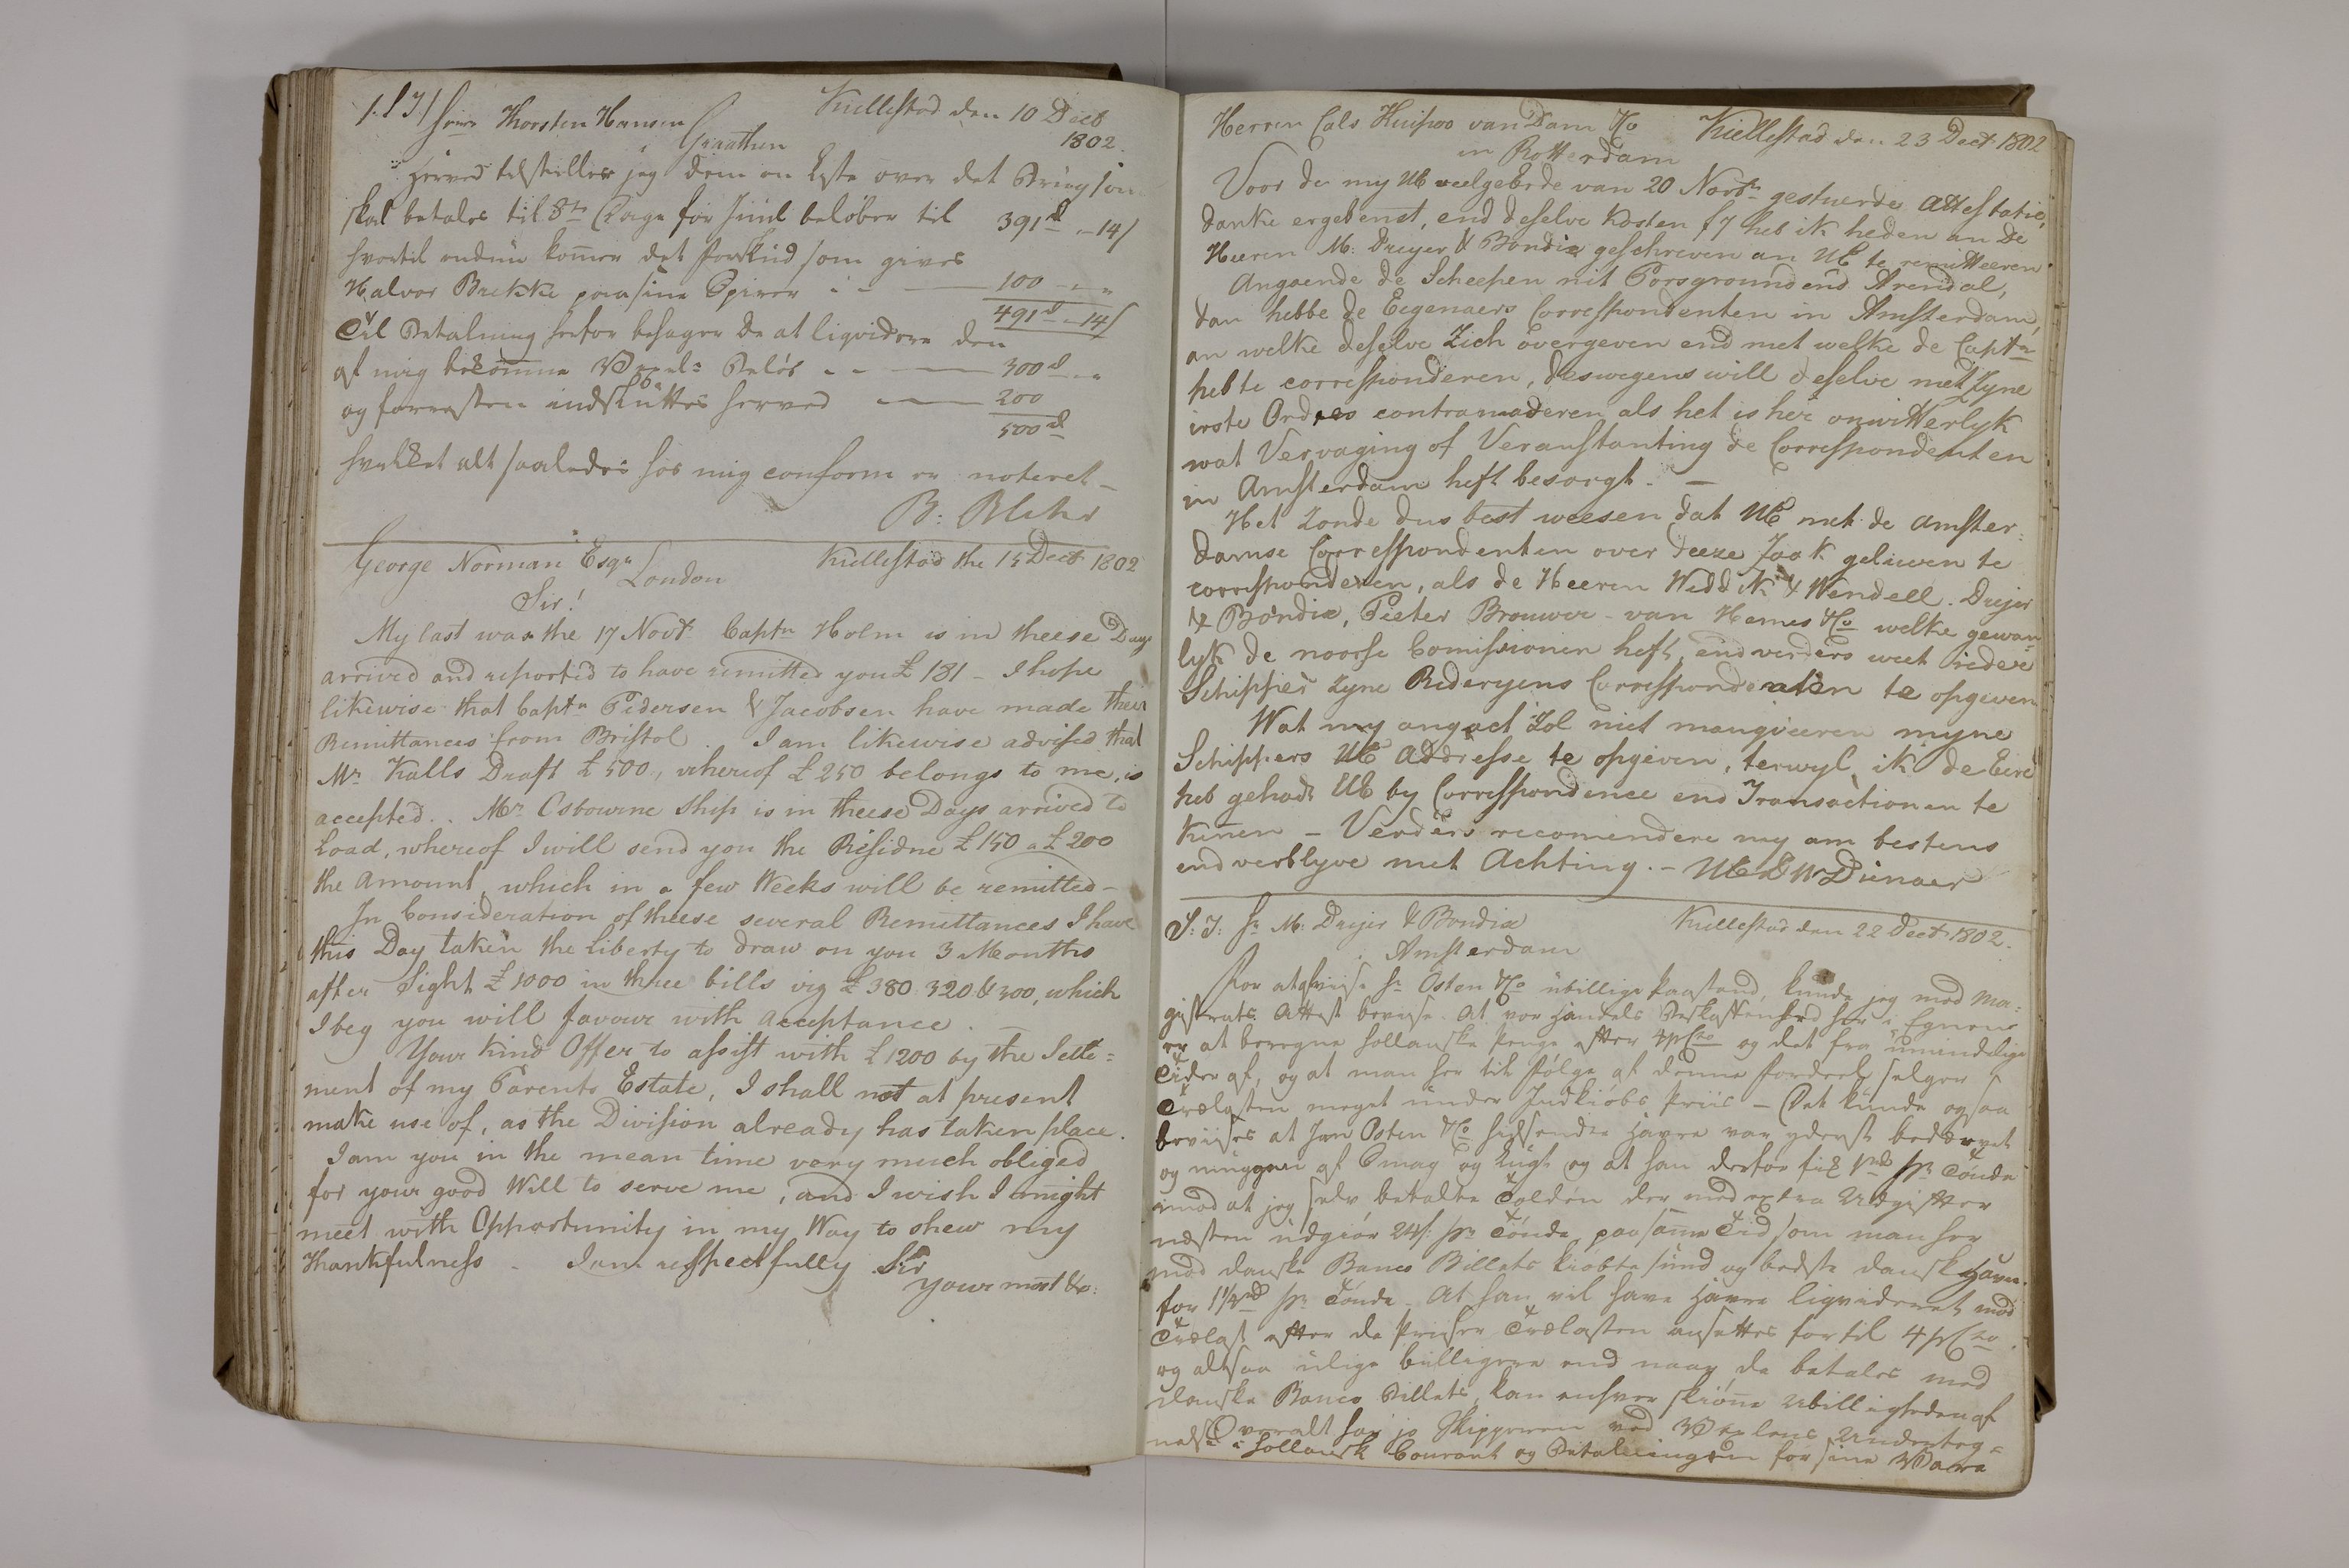 S. T. Herr Thorsten Hansen Kiellestad den 10 Decb
Graathen 1802.
Herved tilstiller jeg Dem en Liste over det Bring som
skal betales til 8de Dage før Juul beløber til 391d „ 14/
hvortil endnu kommer det Forskud som gives
Halvor Brekke paa sine Spirer - - 100 „ „
491d „ 14/
Til Betalning herfor behager De at liqvidere den
af mig bekomne Vexels Beløb - - 300d „ „
og forresten indskuttes herved 200
500d
hvilket alt saaledes hos mig conform er noteret –
B: Blehr
George Norman Esqr Kiellestad the 15 Decb 1802
London
Sir!
My last was the 17 Novb. Captn Holm is in theese Days
arrived and reported to have remitted you £ 181 – I hope
likewise that Captn Pedersen & Jacobsen have made their
Remittances from Bristol. I am likewise advised that
Mr Kalls Draft £ 500, whereof £ 250 belongs to me, is
accepted. . Mr Osbourne Ship is in theese Days arrived to
Load, whereof I will send you the Residue £ 150 a £ 200
the Amount, which in a few Weeks will be remitted –
In Consideration of theese several Remittances I have
this Day taken the Liberty to draw on you 3 Months
after Sight £ 1000 in three bills vig £ 380 320 & 300, which
I beg you will favour with acceptance. –
Your kind Offer to assist with £ 1200 by the Settle=
ment of my Parents Estate, I shall not at present
make use of, as the Division already has taken place.
I am you in the mean time very much obliged
for your good Will to serve me, and I wish I might
meet with Opportunity in my Way to shew my
Thankfulness – I am respectfully Sir
your most &c:
Herren Cals van Dam & Co Kiellestad den 23 Decb 1802
in Rotterdam
Voor de my UE veelgeEerde van 20 Novbr gestuerde Attestatie,
danke ergebenst, end deselve Kosten f 7 heb ik heden an De
Heeren M: Dreyer & Bondix geschreven an UE te remitteeren.
Angaende de Scheepen uit Porsground end Arendal,
dan hebbe de Eegenaers Correspondenten in Amsterdam,
an welke deselve Zich overgeven end met welke de Captn
heb te corresponderen, deswegens will deselve met Zyne
irste Ordres contramaderen als het is hier onwitterlyk
wat Vervaging of Veranstanting de Correspondenten
in Amsterdam heft besorgt. –
Het Zonde dus best weesen dat UE met de Amster=
damse Correspondenten over deeze Zaak geliewen te
corresponderen, als de Heeren Weddik & Wendell. Dreyer
& Bondix, Pieter Brouwer – van Hemes & Co welke gewan=
lyk de noorse Comissionen heft, end verders weet iedere
Schipper Zyne Rederyens Correspondenten te opgeven
Wat my angaet Zol niet manqveeren myne
Schippers UE Addresse te opgeven, terwyl ik de Eere
heb gehadt UE by Correspondence end Transactionen te
kinnen – Verders recomendere my am bestens
end verblyve met Achting. – UE DW Dienaer
S: T: Hr M: Dreyer & Bondix Kiellestad den 22 Decb 1802.
i Amsterdam
For at afviise Hr Osten & Co ubillige Paastand, kunde jeg med Ma=
gistrats Attest bevise. At vor Handels Beskaffenhed her i Egnene
er at beregne hollanske Penge efter 4 pCto og det fra umindelige
Tider af, og at man her til Følge af denne Fordeel selger
Trælasten meget under Indkiøbs Priis – Det kunde ogsaa
beviises at Hrn Osten & Co hidsendte Havre var yderst bedærvet
og muggen af Smag og Lugt og at han derfor fik pr Tønde
imod at jeg selv betalte Tolden der med extra Udgifter
næsten udgiør 24/: pr Tønde, paa samme Tid som man her
med danske Banco Billets kiøbte sund og bedste dansk Havre
for 1¼rd pr Tønde – At han vil have Havre liqvideret mod
Trælast efter de Priser Trælasten ansettes for til 4 pCto.
og altsaa ulige billigere end naar de betales med
danske Banco Billets, kan enhver skiønne Ubilligheden af
Overalt har jo Skipperen ved Vexlens Underteg=
nelse i hollansk Courant og Betalningen for sine Vare